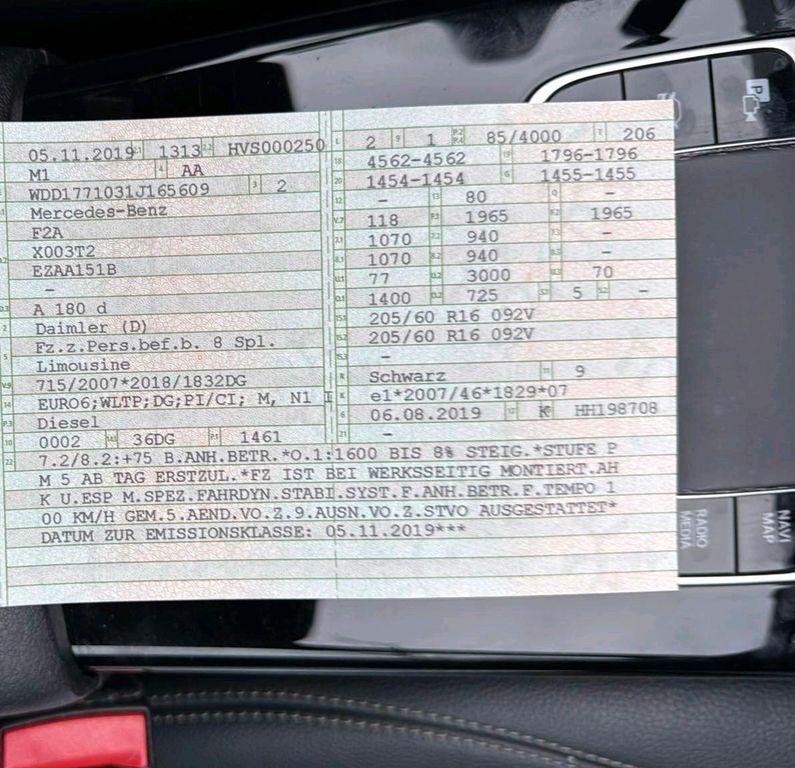 05.11.2019 1313 HVS000250
M1 AA
WDD1771031J165609 2
Mercedes-Benz
F2A
X003T2
EZAA151B
-
A 180 d
Daimler (D)
Fz.z.Pers.bef.b. 8 Spl.
Limousine
715/2007*2018/1832DG
EURO6;WLTP;DG;PI/CI; M, N1 I
Diesel
0002 36DG 1461
2 1 85/4000 206
4562-4562 1796-1796
1454-1454 1455-1455
- 80 -
118 1965 1965
1070 940 -
1070 940 -
77 3000 70
1400 725 5 -
205/60 R16 092V
205/60 R16 092V
-
Schwarz 9
e1*2007/46*1829*07
06.08.2019 K HH198708
-
7.2/8.2:+75 B.ANH.BETR.*O.1:1600 BIS 8% STEIG.*STUFE P
M 5 AB TAG ERSTZUL.*FZ IST BEI WERKSSEITIG MONTIERT.AH
K U.ESP M.SPEZ.FAHRDYN.STABI.SYST.F.ANH.BETR.F.TEMPO 1
00 KM/H GEM.5.AEND.VO.Z.9.AUSN.VO.Z.STVO AUSGESTATTET*
DATUM ZUR EMISSIONSKLASSE: 05.11.2019***
P
RADIO
MEDIA
NAVI
MAP